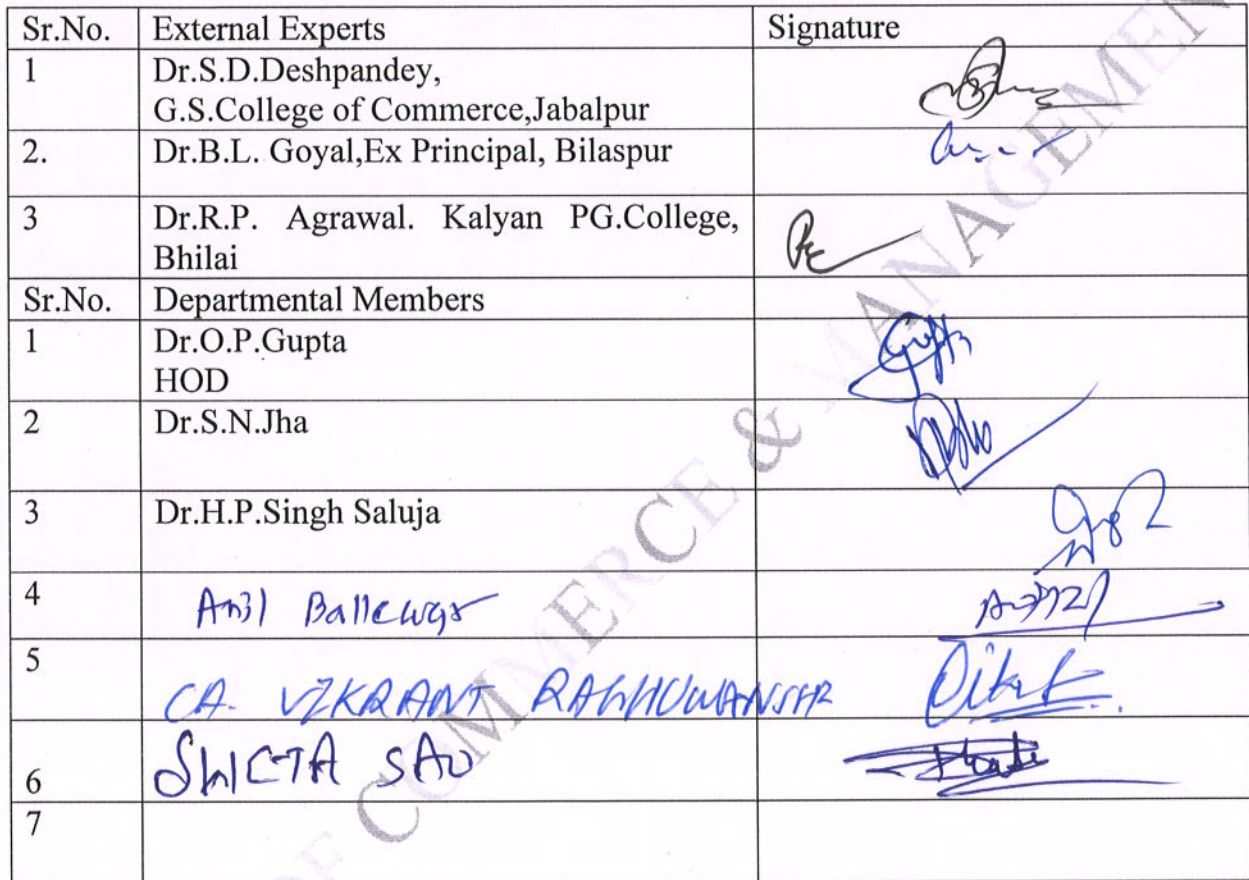 Sr.No. External Experts Signature
1 Dr.S.D.Deshpandey,
G.S.College of Commerce,Jabalpur
2. Dr.B.L. Goyal,Ex Principal, Bilaspur
3 Dr.R.P. Agrawal. Kalyan PG.College,
Bhilai
Sr.No. Departmental Members
1 Dr.O.P.Gupta Gupta
HOD
2 Dr.S.N.Jha
3 Dr.H.P.Singh Saluja
4 Anil Ballewar
5 CA. VIKRANT RAGHUWANSHI
6 SHWETA SAO
7
OF COMMERCE & MANAGEMEN